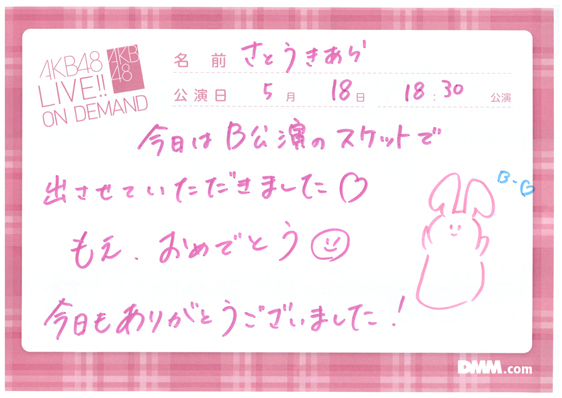 AKB48
LIVE!!
ON DEMAND
AKB
48
名 前 さとうきあら
公演日 5月 18日 18:30 公演
今日はB公演のスケットで
出させていただきました♡
もえ、おめでとう☺
今日もありがとうございました!
B-♡
DMM.com